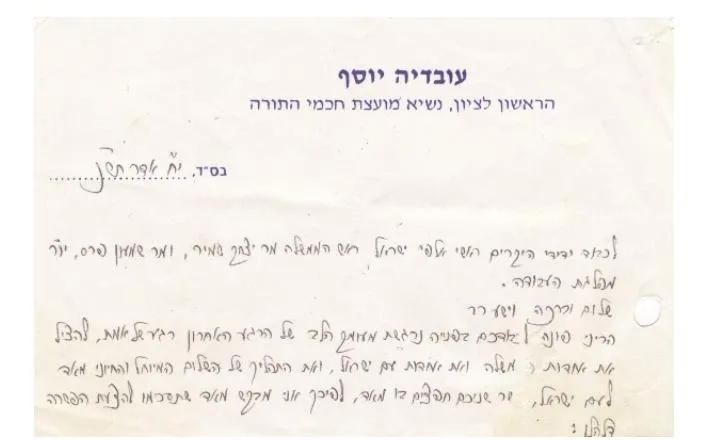 עובדיה יוסף
הראשון לציון, נשיא מועצת חכמי התורה
בס"ד, י"ח אדר תש"ן
לכבוד ידידי היקרים ראשי אלפי ישראל, ראש הממשלה מר יצחק שמיר, ומר שמעון פרס, יו"ר
מפלגת העבודה.
שלום וברכה וישע רב
הריני פונה לכבודכם בפניה נרגשת מעומק הלב של הרגע האחרון רגע של אמת, להציל
את אחדות משלה ואת אחדות עם ישראל, ואת התהליך של השלום המיוחל והחיוני מאד
לעם ישראל, שניכם חפצים בו מאד, לפיכך אני מבקש מאד שתסכימו להצעת הפשרה
דלהלן: